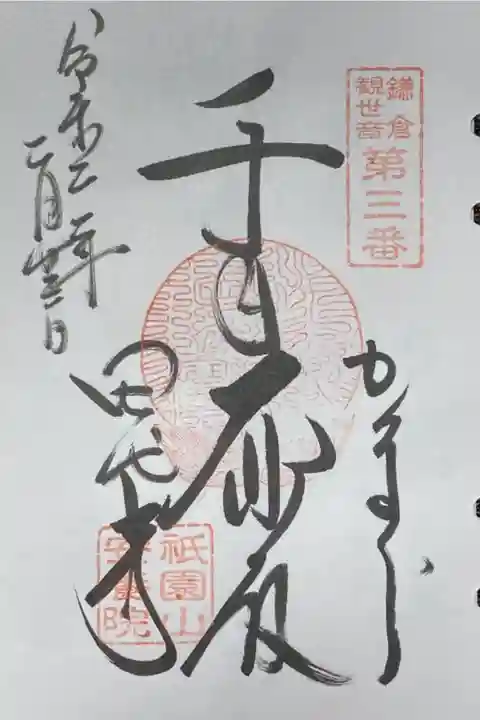 鎌倉
観世音
第三番
かまくら
千手
田代寺
令和二年
二月
祇園山
安養院